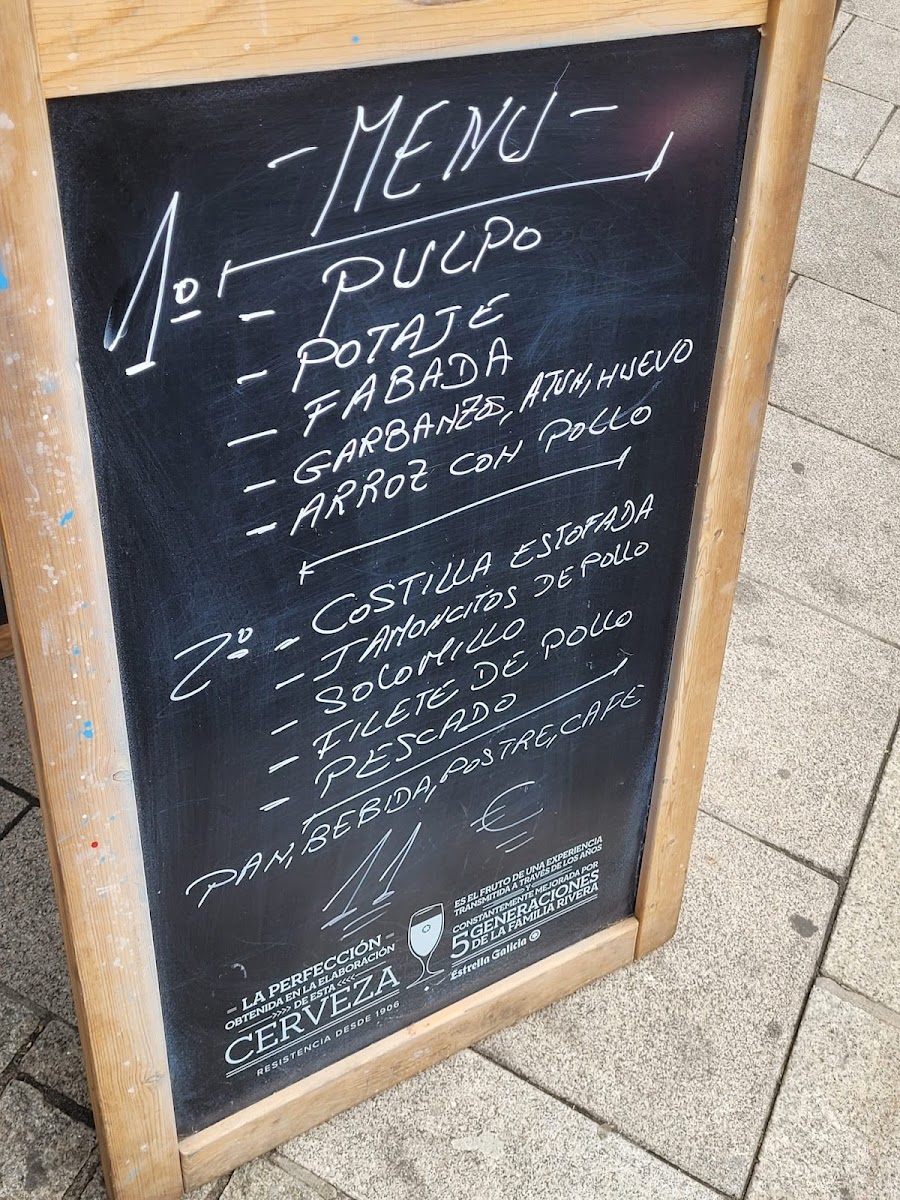 - MENU -
1º - PULPO
- POTAJE
- FABADA
- GARBANZOS, ATUN, HUEVO
- ARROZ CON POLLO
2º - COSTILLA ESTOFADA
- JAMONCITOS DE POLLO
- SOLOMILLO
- FILETE DE POLLO
- PESCADO
PAN, BEBIDA, POSTRE, CAFE
11 €
- LA PERFECCIÓN -
OBTENIDA EN LA ELABORACIÓN
>>>> DE ESTA <<<<
CERVEZA
RESISTENCIA DESDE 1906
ES EL FRUTO DE UNA EXPERIENCIA
TRANSMITIDA A TRAVÉS DE LOS AÑOS
Y
CONSTANTEMENTE MEJORADA POR
5 GENERACIONES
DE LA FAMILIA RIVERA
Estrella Galicia